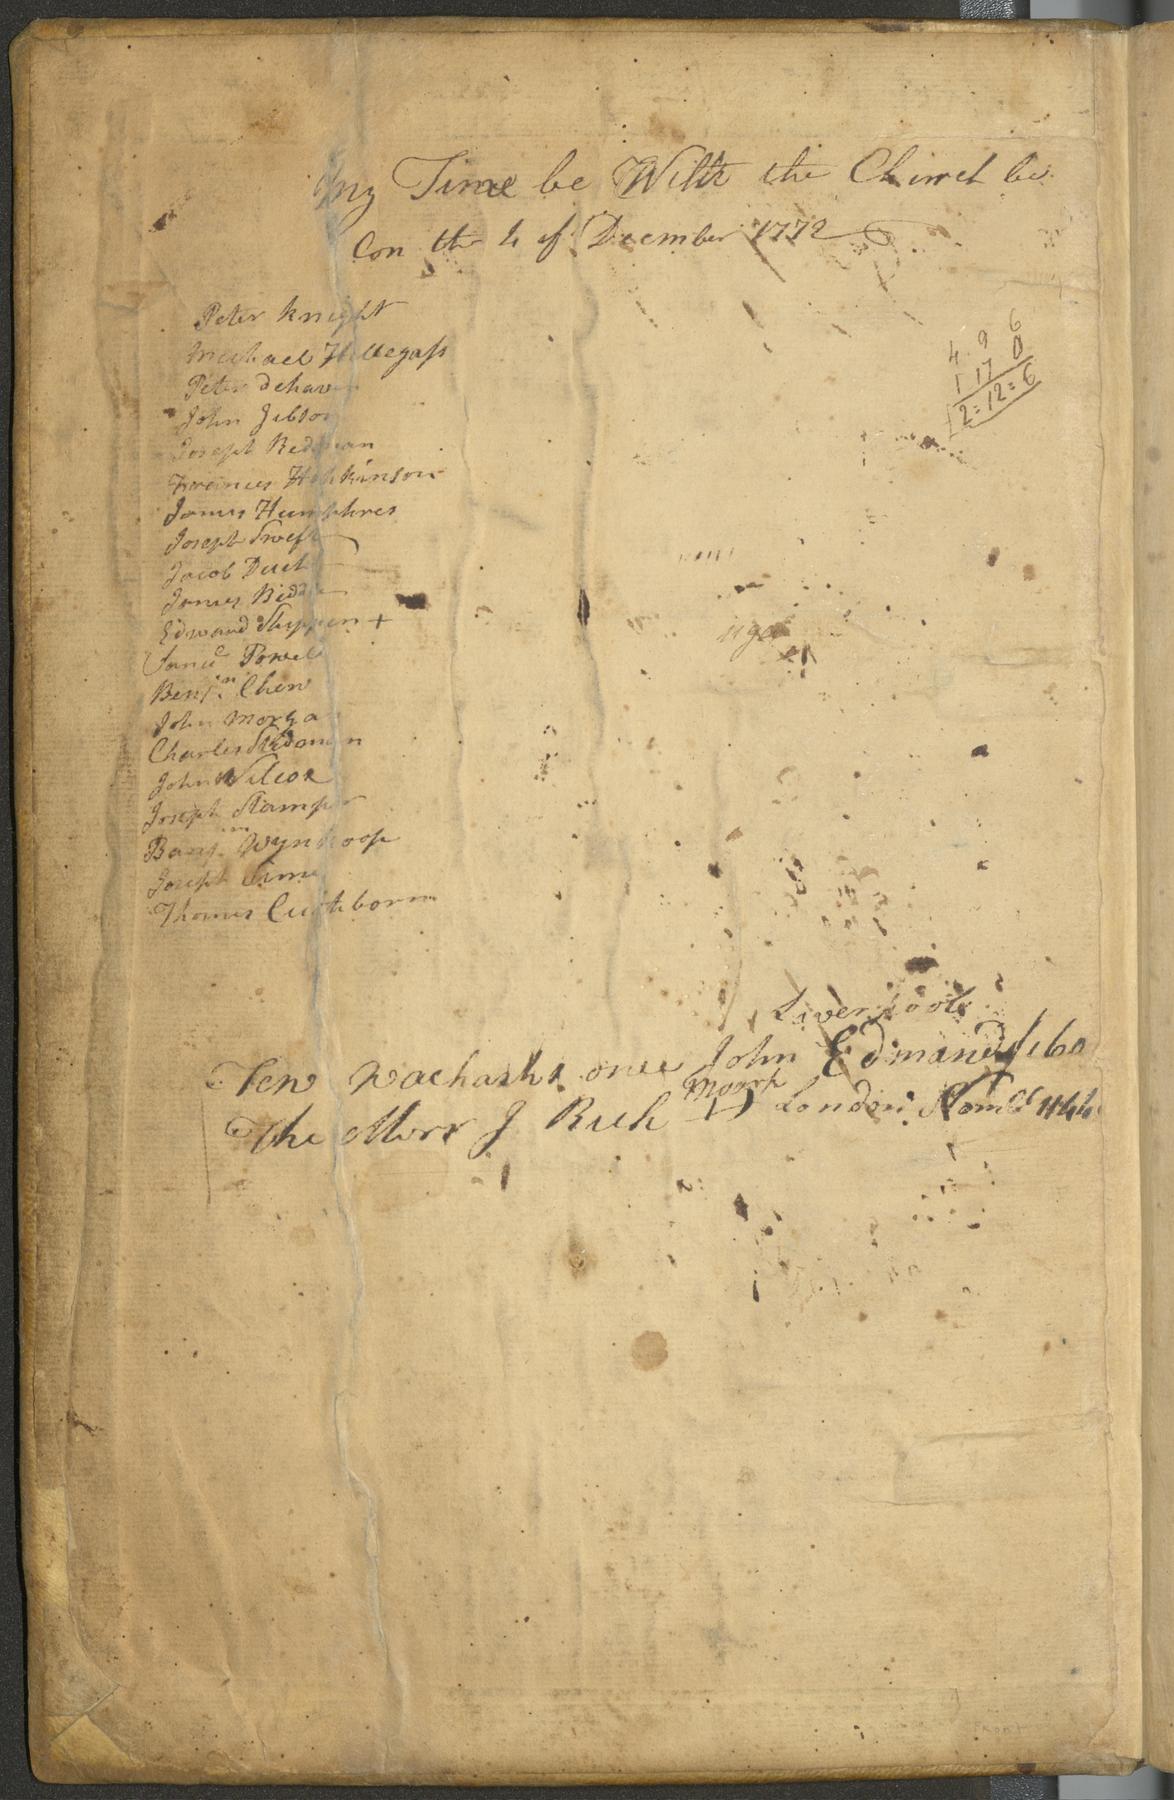 my Time be With the Church be
Con the 4 of December 1772
Peter Knight
Michael Hillegass
Peter Dehaven
John Gibson
Joseph Redman
Francies Hopkinson
James Humphres
Joseph Swift
Jacob Duch
James Biddle
Edward Shippen +
Sam.e Powel
Benj.n Chew
John Morga
Charles Stedman
John Wilcox
Joseph Stamper
Banj.m Wynkoop
Joseph Sims
Thomas Cuthborn
4 . 9 6
1 17 0
2=12=6
Liverpool
John Edmand
The J Rich Moor London
Front